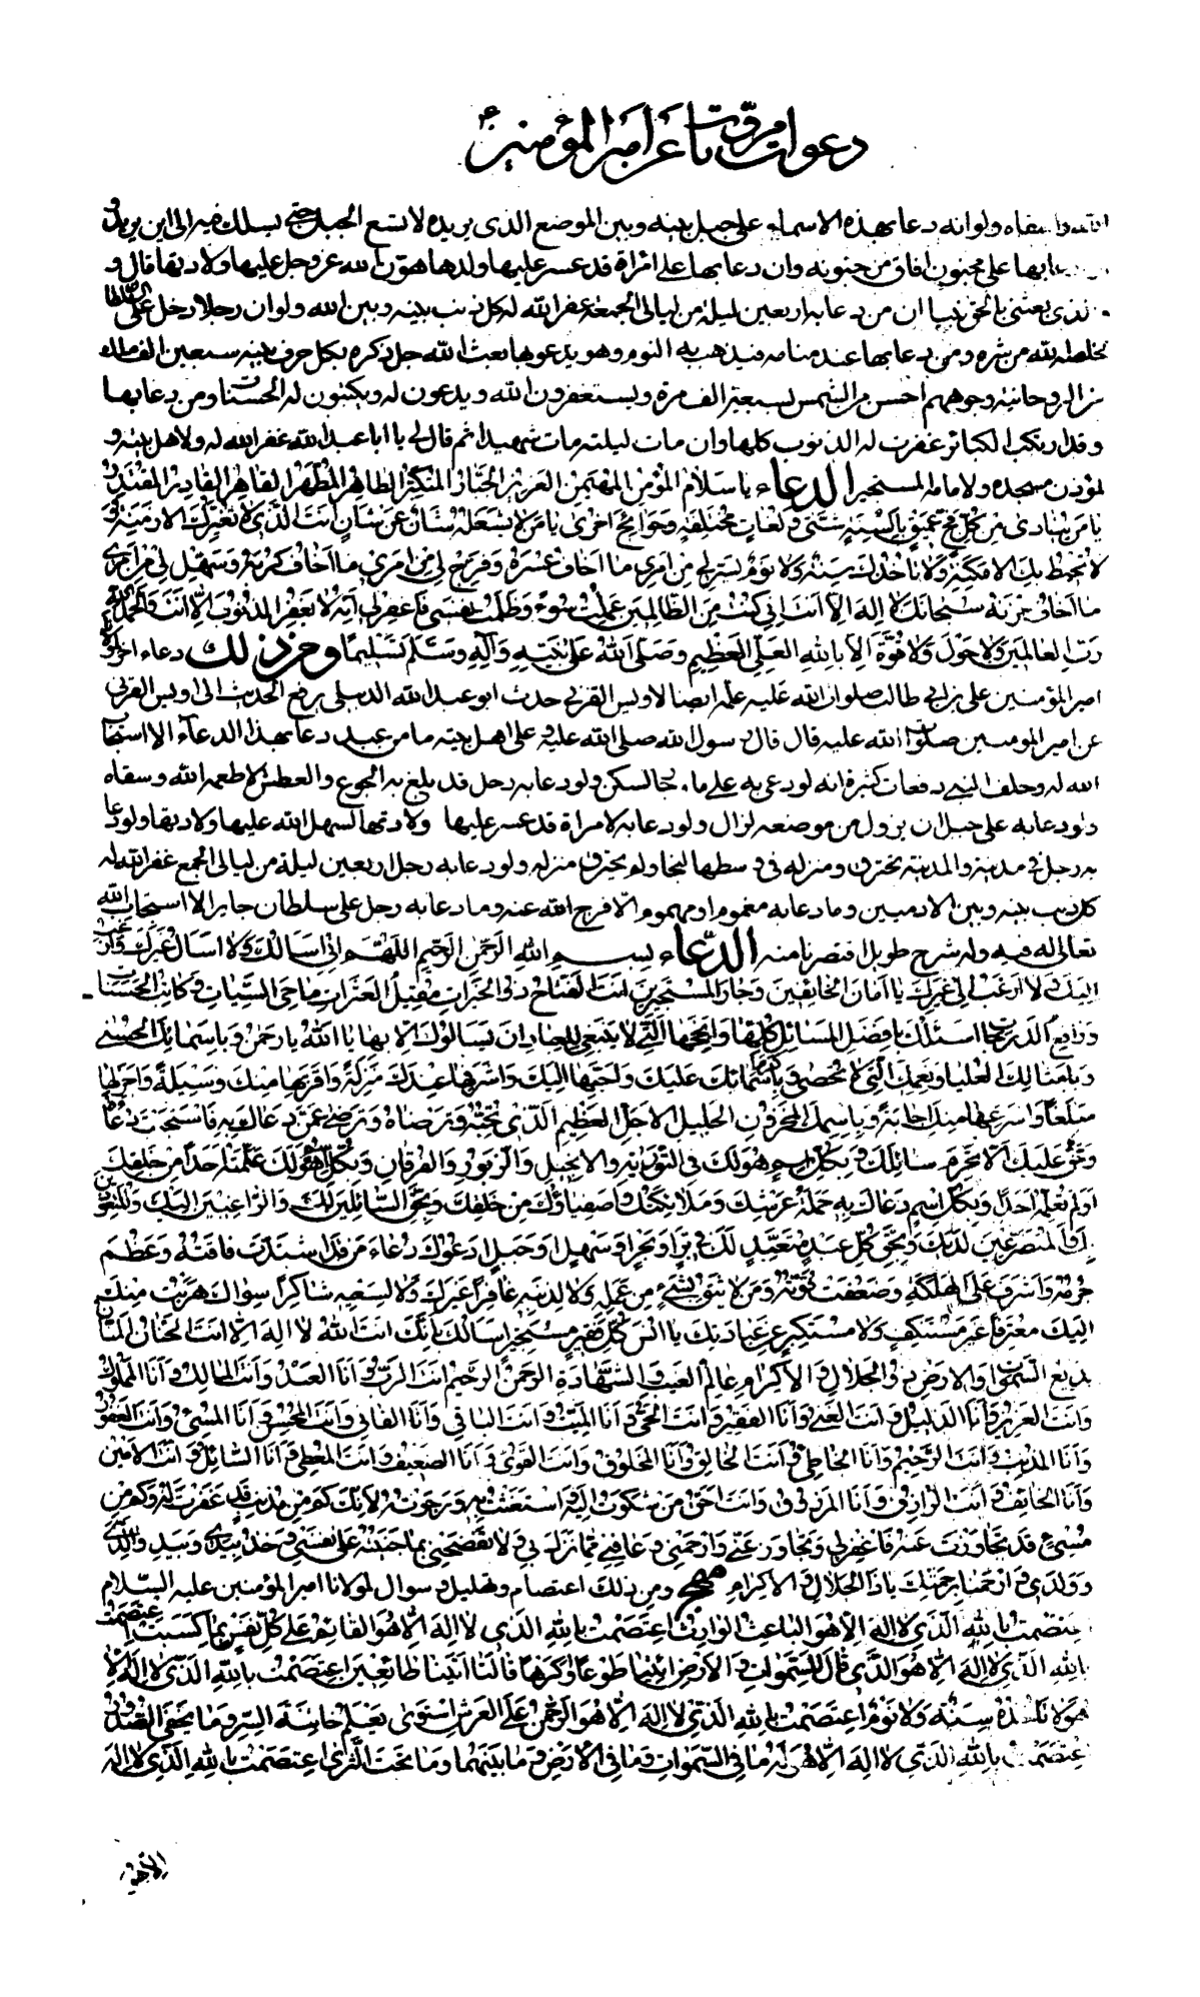 دعوات مرويات عن امير المؤمنين ع
الله وسقاه ولو انه دعا بهذه الاسماء على جبل بينه وبين الموضع الذى يريده لاتسع الجبل حتى يسلك فيه الى اين يريد و
دعا بها على مجنون افاق من جنونه وان دعا بها على امراة قد عسر عليها ولدها هون الله عز وجل عليها ولادتها قال و
الذى بعثنى بالحق نبيا ان من دعا به اربعين ليلة من ليالى الجمعة غفر الله له كل ذنب بينه وبين الله ولو ان رجلا دخل على سلطان
لخلصه الله من شره ومن دعا بها عند منامه فيذهب به النوم وهو يدعو بها بعث الله جل ذكره بكل حرف منه سبعين الف ملك
من الروحانية وجوههم احسن من الشمس بسبعين الف مرة ويستغفرون الله ويدعون له ويكتبون له الحسنات ومن دعا بها
وقد ارتكب الكبائر غفرت له الذنوب كلها وان مات ليلته مات شهيدا ثم قال لى يا ابا عبد الله غفر الله له ولاهل بيته و
لمؤذن مسجده ولامامه المستجير الدعاء يا سلام المؤمن المهيمن العزيز الجبار المتكبر الطاهر المطهر القاهر القادر المقتدر
يا من ينادى من كل فج عميق بالسنة شتى ولغات مختلفة وحوائج اخرى يا من لا يشغله شان عن شان انت الذى لا تغيرك الازمنة و
لا تحيط بك الامكنة ولا تاخذك سنة ولا نوم يسر لى من امرى ما اخاف عسره وفرج لى من امرى ما اخاف كربه وسهل لى من امرى
ما اخاف حزنه سبحانك لا اله الا انت انى كنت من الظالمين عملت سوء وظلمت نفسى فاغفر لى انه لا يغفر الذنوب الا انت والحمد لله
رب العالمين ولا حول ولا قوة الا بالله العلى العظيم وصلى الله على نبيه وآله وسلم تسليما ومن ذلك دعاء اخر لمولانا
امير المؤمنين على بن ابى طالب صلوات الله عليه علمه ايضا لاويس القرنى حدث ابو عبد الله الدبيلى يرفع الحديث الى اويس القرنى
عن امير المومنين صلوات الله عليه قال قال رسول الله صلى الله عليه و على اهل بيته ما من عبد دعا بهذا الدعاء الا استجاب
الله له وحلف النبى دفعات كثيرة انه لو دعى به على ماء جار لسكن ولو دعا به رجل قد بلغ به الجوع والعطش لاطعمه الله وسقاه
ولو دعا به على جبل ان يزول من موضعه لزال ولو دعا به لامراة قد عسر عليها ولادتها لسهل الله عليها ولادتها ولو دعا
به رجل فى مدينة والمدينة تحترق ومنزله فى وسطها لنجا ولم يحترق منزله ولو دعا به رجل اربعين ليلة من ليالى الجمع غفر الله له
كل ذنب بينه وبين الادميين وما دعا به مغموم او مهموم الا فرج الله عنه وما دعا به رجل على سلطان جاير الا استجاب الله
تعالى له فيه وله شرح طويل اقتصرنا منه الدعاء بسم الله الرحمن الرحيم اللهم انى اسالك ولا اسال غيرك وارغب
اليك ولا ارغب الى غيرك يا امان الخائفين وجار المستجيرين انت الفتاح ذو الخيرات مقيل العثرات ماحى السيئات وكاتب الحسنات
ورافع الدرجات اسئلك بافضل المسائل كلها وانجحها التى لا ينبغى للعباد ان يسالوك الا بها يا الله يا رحمن وباسمائك الحسنى
وبامثالك العليا ونعمك التى لا تحصى وباكرم اسمائك عليك واحبها اليك واشرفها عندك منزلة واقربها منك وسيلة واجزلها
مبلغا واسرعها منك اجابة وباسمك المخزون الجليل الاجل العظيم الذى تحبه وترضاه وترضى عمن دعاك به فاستجبت دعاه
وحق عليك الا تحرم سائلك و بكل اسم هو لك فى التورية والانجيل والزبور والفرقان وبكل اسم هو لك علمته احدا من خلقك
او لم تعلمه احدا وبكل اسم دعاك به حملة عرشك وملائكتك واصفياؤك من خلقك وبحق السائلين لك والراغبين اليك والمتعوذين
بك والمتضرعين لديك وبحق كل عبد متعبد لك فى بر او بحر او سهل او جبل ادعوك دعاء من قد اشتدت فاقته وعظم
جرمه واشرف على الهلكة وضعفت قوته ومن لا يثق بشىء من عمله ولا لذنبه غافرا غيرك ولا لسعيه شاكرا سواك هربت منك
اليك معترفا غير مستنكف ولا مستكبر عن عبادتك يا انس كل فقير مستجير اسالك بانك انت الله لا اله الا انت الحنان المنان
بديع السموات والارض ذو الجلال و الاكرام عالم الغيب والشهادة الرحمن الرحيم انت الرب وانا العبد وانت المالك وانا المملوك
وانت العزيز وانا الذليل وانت الغنى وانا الفقير وانت الحى وانا الميت وانت الباقى وانا الفانى وانت المحسن وانا المسىء وانت الغفور
وانا المذنب وانت الرحيم وانا الخاطى وانت الخالق وانا المخلوق وانت القوى وانا الضعيف وانت المعطى وانا السائل وانت الامين
وانا الخائف وانت الرازق وانا المرزوق وانت احق من شكوت اليه واستغثت به ورجوته لانك كم من مذنب قد غفرت له وكم من
مسىء قد تجاوزت عنه فاغفر لى وتجاوز عنى وارحمنى وعافنى مما نزل بى ولا تفضحنى بما جنيته على نفسى وخذ بيدى وبيد والدى
وولدى وارحمنا برحمتك يا ذا الجلال و الاكرام مهج ومن ذلك اعتصام وتهليل وسوال لمولانا امير المؤمنين عليه السلام
اعتصمت بالله الذى لا اله الا هو الباعث الوارث اعتصمت بالله الذى لا اله الا هو القائم على كل نفس بما كسبت اعتصمت
بالله الذى لا اله الا هو الذى قال للسموات و الارض ائتيا طوعا او كرها قالتا اتينا طائعين اعتصمت بالله الذى لا اله الا
هو لا تاخذه سنة ولا نوم اعتصمت بالله الذى لا اله الا هو الرحمن على العرش استوى يعلم خائنة السر وما تخفى الصدور
اعتصمت بالله الذى لا اله الا هو له ما فى السموات وما فى الارض وما بينهما وما تحت الثرى اعتصمت بالله الذى لا اله
الا هو